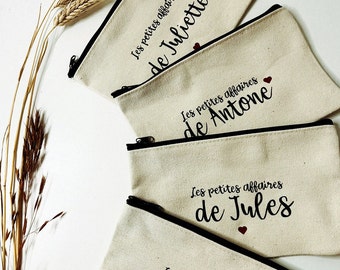 Les petites affaires
de Juliette
Les petites affaires
de Antone
Les petites affaires
de Jules
Les petites affaires